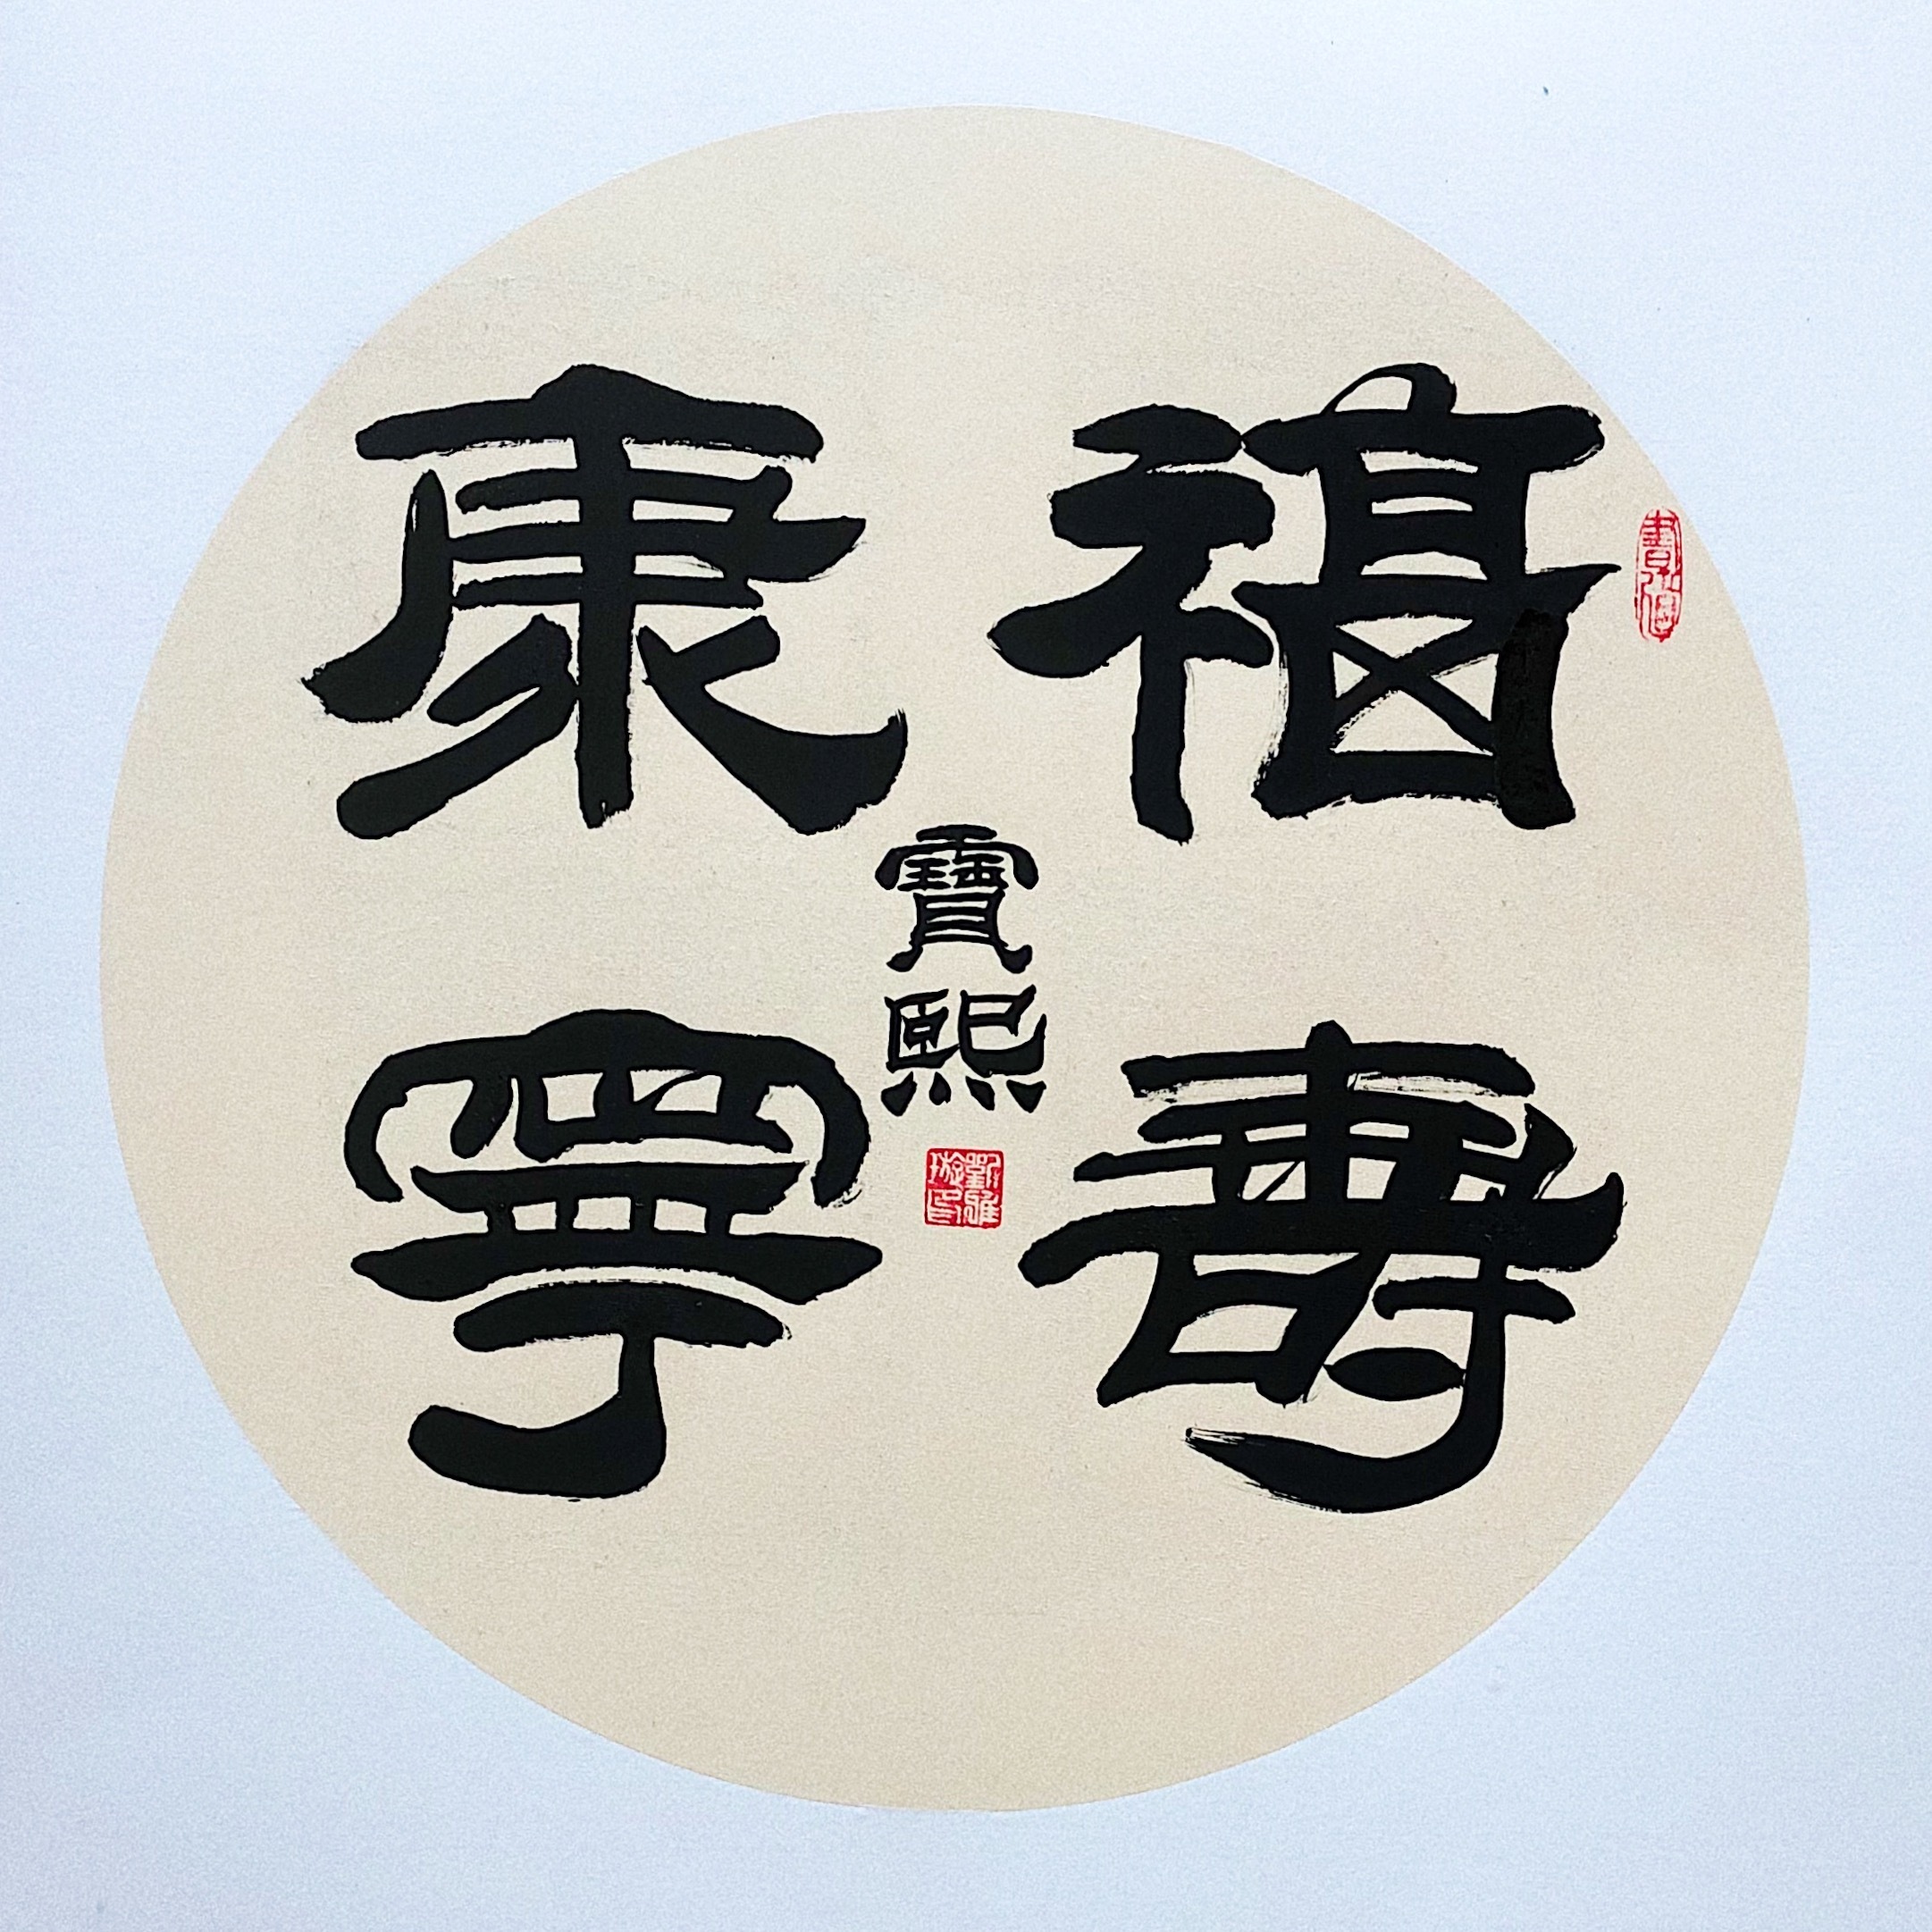 福壽
康寧
寶熙